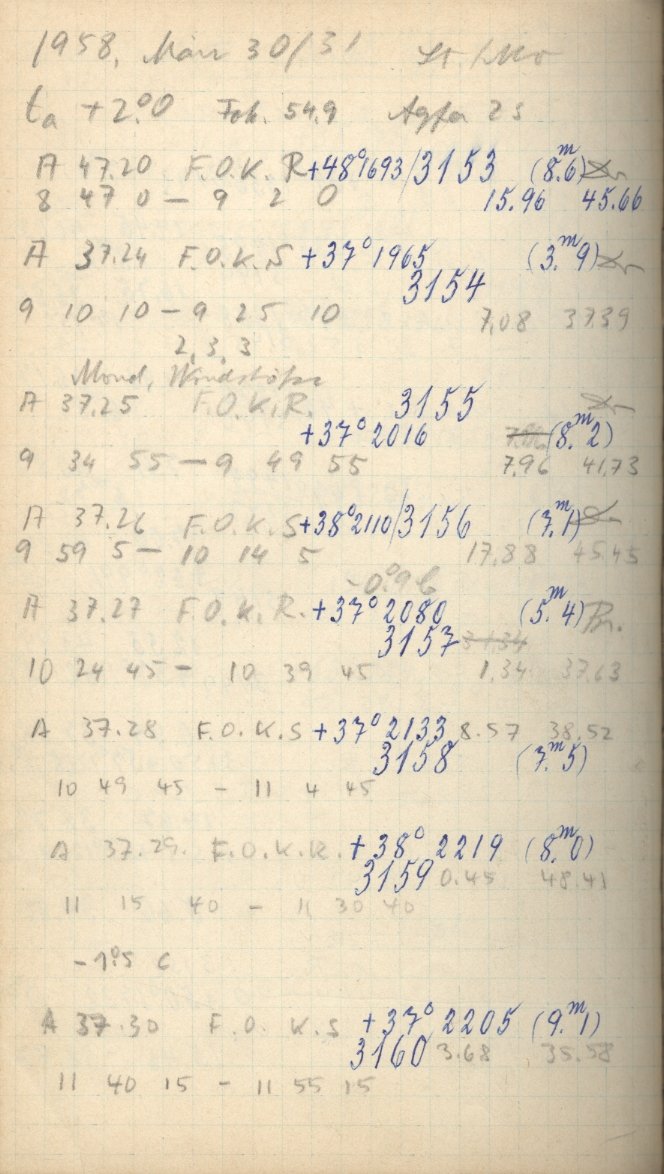 1958, März 30/31 St./Mo
ta +2.°0 Fok. 54.9 Agfa
A 47.20 F.O.K. R +48°1693/3153 (8.m6)
8 47 0 – 9 2 0 15.96 45.66
A 37.24 F.O.K. S +37°1965 (3.m9)
3154
9 10 10 – 9 25 10 7,08 37.39
2, 3, 3
Mond, Windstöße
A 37.25 F.O.K.R. 3155
+37°2016 (8.m2)
9 34 55 – 9 49 55 7.96 41,73
A 37.26 F.O.K.S +38°2110/3156 (7.m1)
9 59 5 – 10 14 5 17.88 45.45
-0.°96
A 37.27 F.O.K.R. +37°2080 (5.m4) Br.
3157
10 24 45 – 10 39 45 1,34 37.63
A 37.28 F.O.K.S +37°2133 8.57 38.52
3158 (7.m5)
10 49 45 – 11 4 45
A 37.29. F.O.K.R. +38° 2219 (8.m0)
3159 0.45 48.41
11 15 40 – 11 30 40
-1.°5 C
A 37.30 F.O.K.S +37° 2205 (9.m1)
3160 3.68 35.58
11 40 15 – 11 55 15